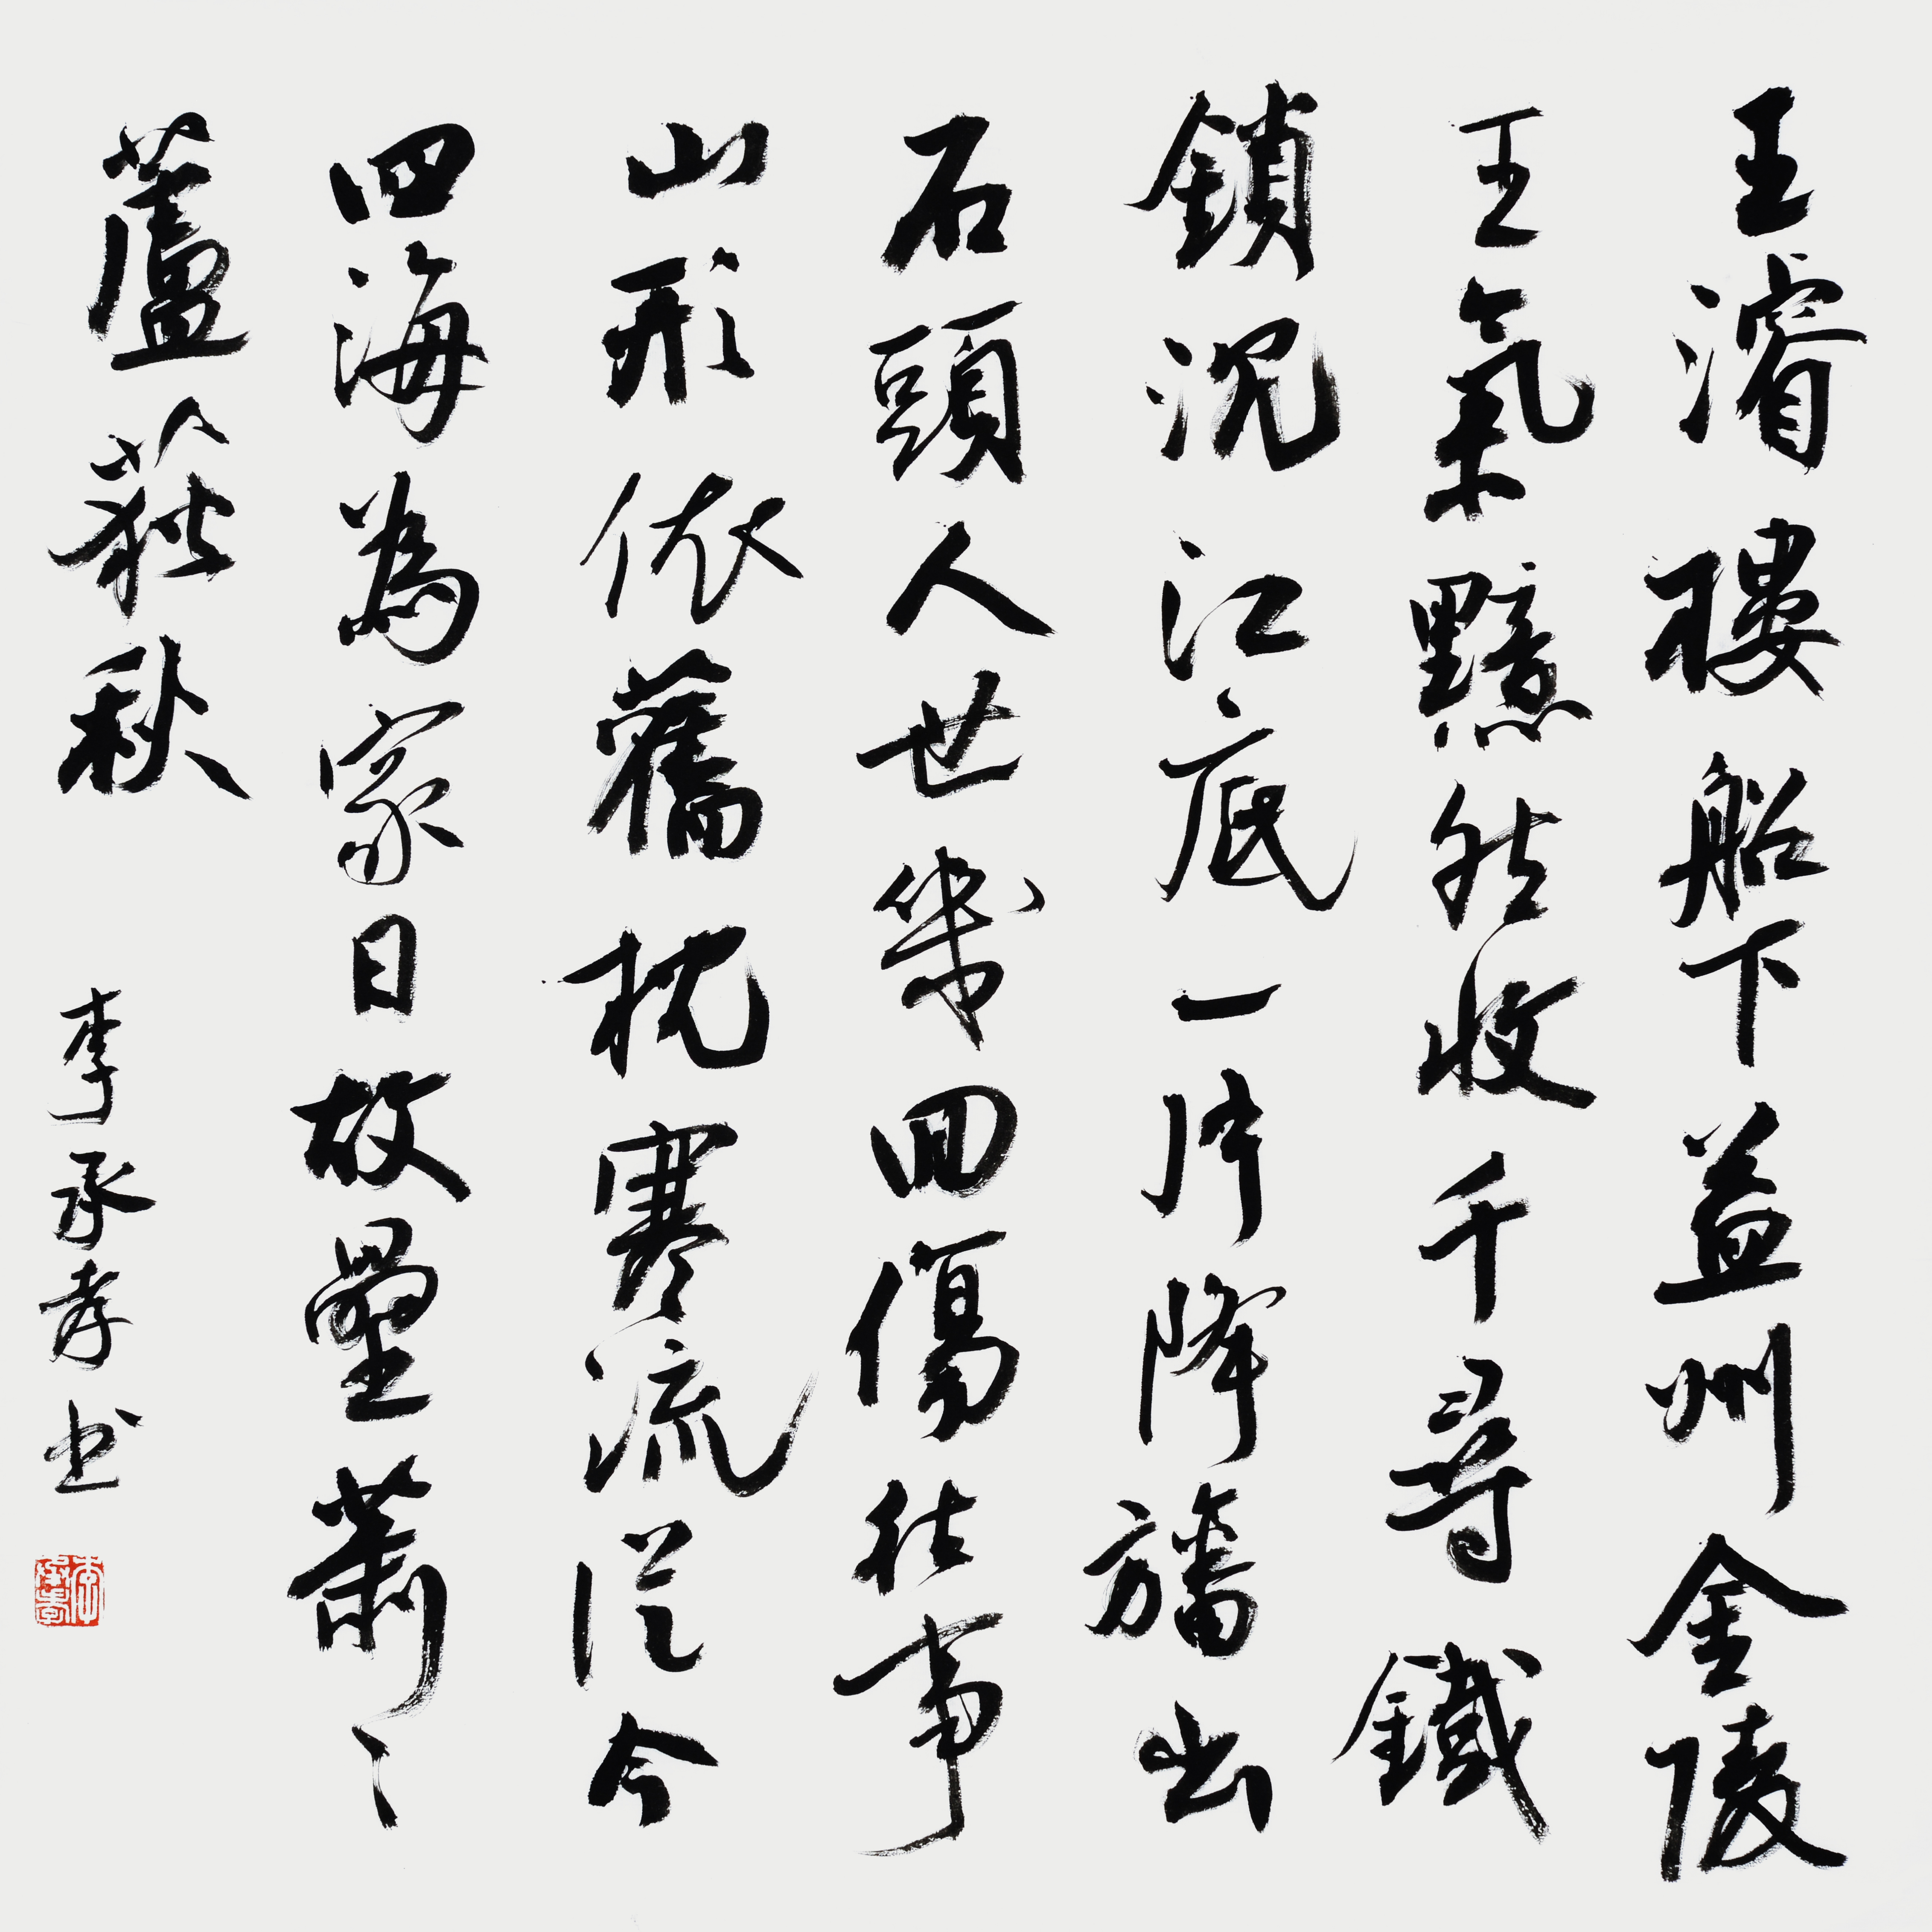 王濬樓船下益州金陵
王氣黯然收千尋鐵
鎖沉江底一片降旛出
石頭人世幾回傷往事
山形依舊枕寒流從今
四海為家日故壘蕭〻
蘆荻秋
李承孝书
李承孝